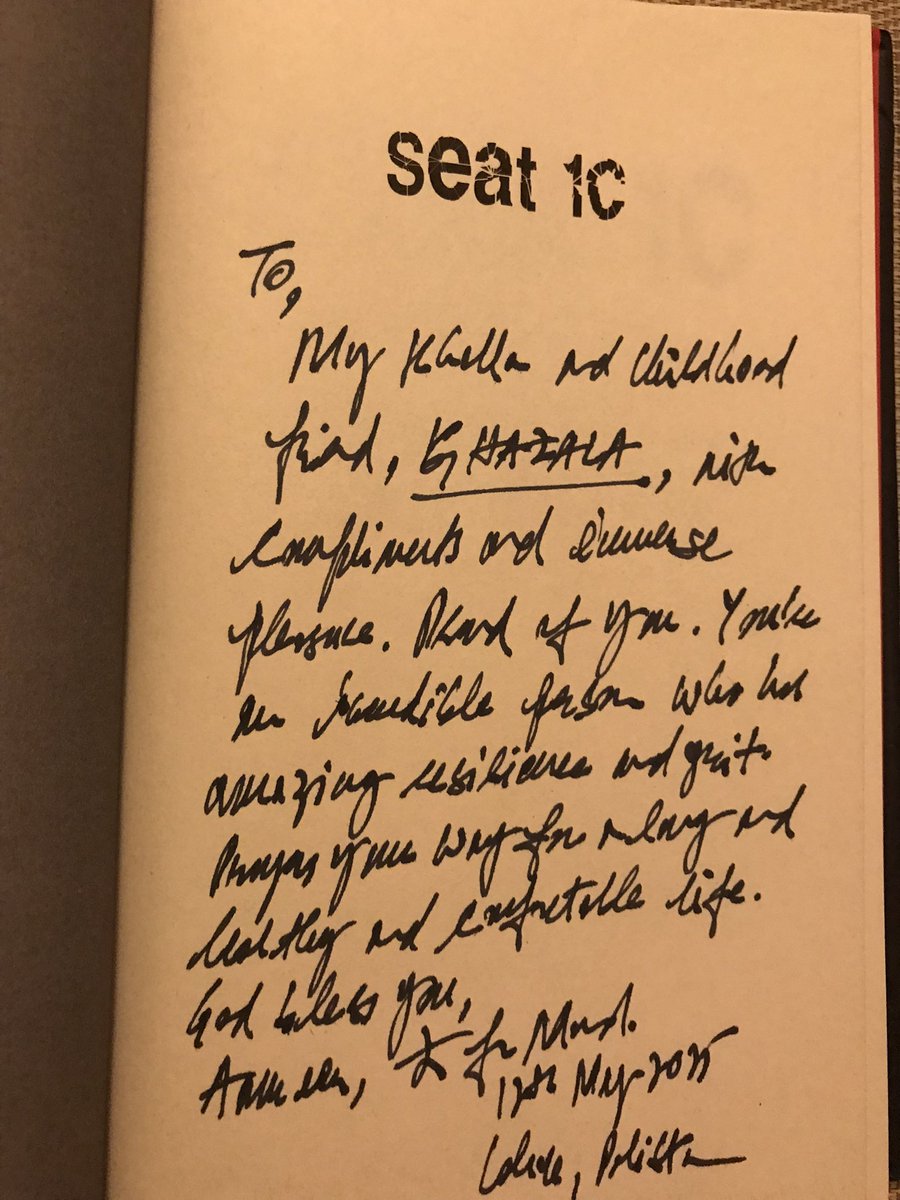 seat 1c
To,
My Khalla and childhood
friend, GHAZALA, with
compliments and immense
pleasure. Proud of you. You're
an incredible person who has
amazing resilience and grit.
Prayers your way for a long and
healthy and comfortable life.
God bless you,
Aameen,
12th May 2025
Lahore, Pakistan